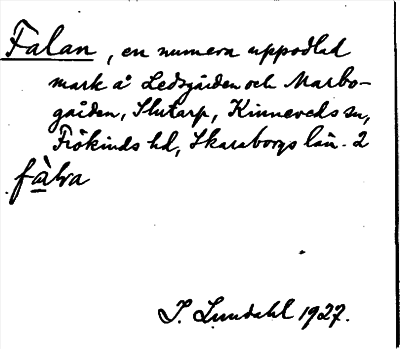 Falan, en numera uppodlad
mark å Ledsgården och Marbo-
gården, Slutarp, Kinneveds sn,
Frökinds hd, Skaraborgs län. 2
fàlra
I. Lundahl 1927.